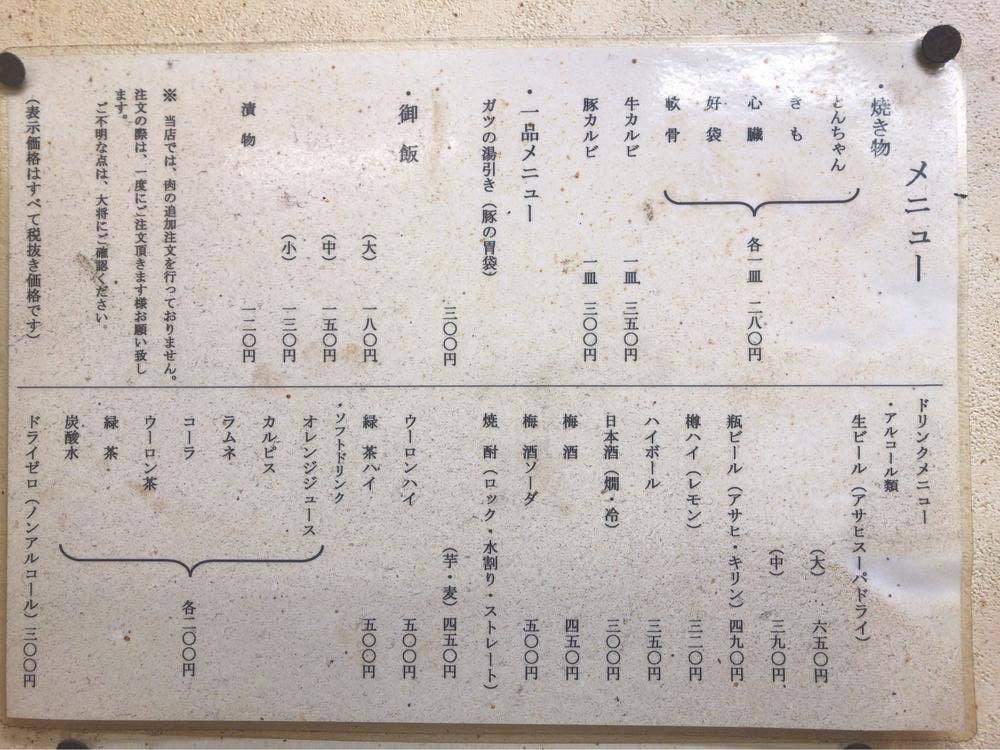 メニュー
・焼き物
とんちゃん
きも
心臓
好袋
軟骨
各一皿 二八〇円
牛カルビ 一皿 三五〇円
豚カルビ 一皿 三〇〇円
・一品メニュー
ガツの湯引き（豚の胃袋）
三〇〇円
・御飯
（大） 一八〇円
（中） 一五〇円
（小） 一三〇円
漬物 一二〇円
※ 当店では、肉の追加注文を行っておりません。
注文の際は、一度にご注文頂きます様お願い致し
ます。
ご不明な点は、大将にご確認ください。
（表示価格はすべて税抜き価格です）
ドリンクメニュー
・アルコール類
生ビール（アサヒスーパドライ）
（大） 六五〇円
（中） 三九〇円
瓶ビール（アサヒ・キリン） 四九〇円
樽ハイ（レモン） 三二〇円
ハイボール 三五〇円
日本酒（燗・冷） 三〇〇円
梅酒 四五〇円
梅酒ソーダ 五〇〇円
焼酎（ロック・水割り・ストレート）
（芋・麦） 四五〇円
ウーロンハイ 五〇〇円
緑茶ハイ 五〇〇円
・ソフトドリンク
オレンジジュース
カルピス
ラムネ
コーラ
ウーロン茶
緑茶
炭酸水
各二〇〇円
ドライゼロ（ノンアルコール） 三〇〇円